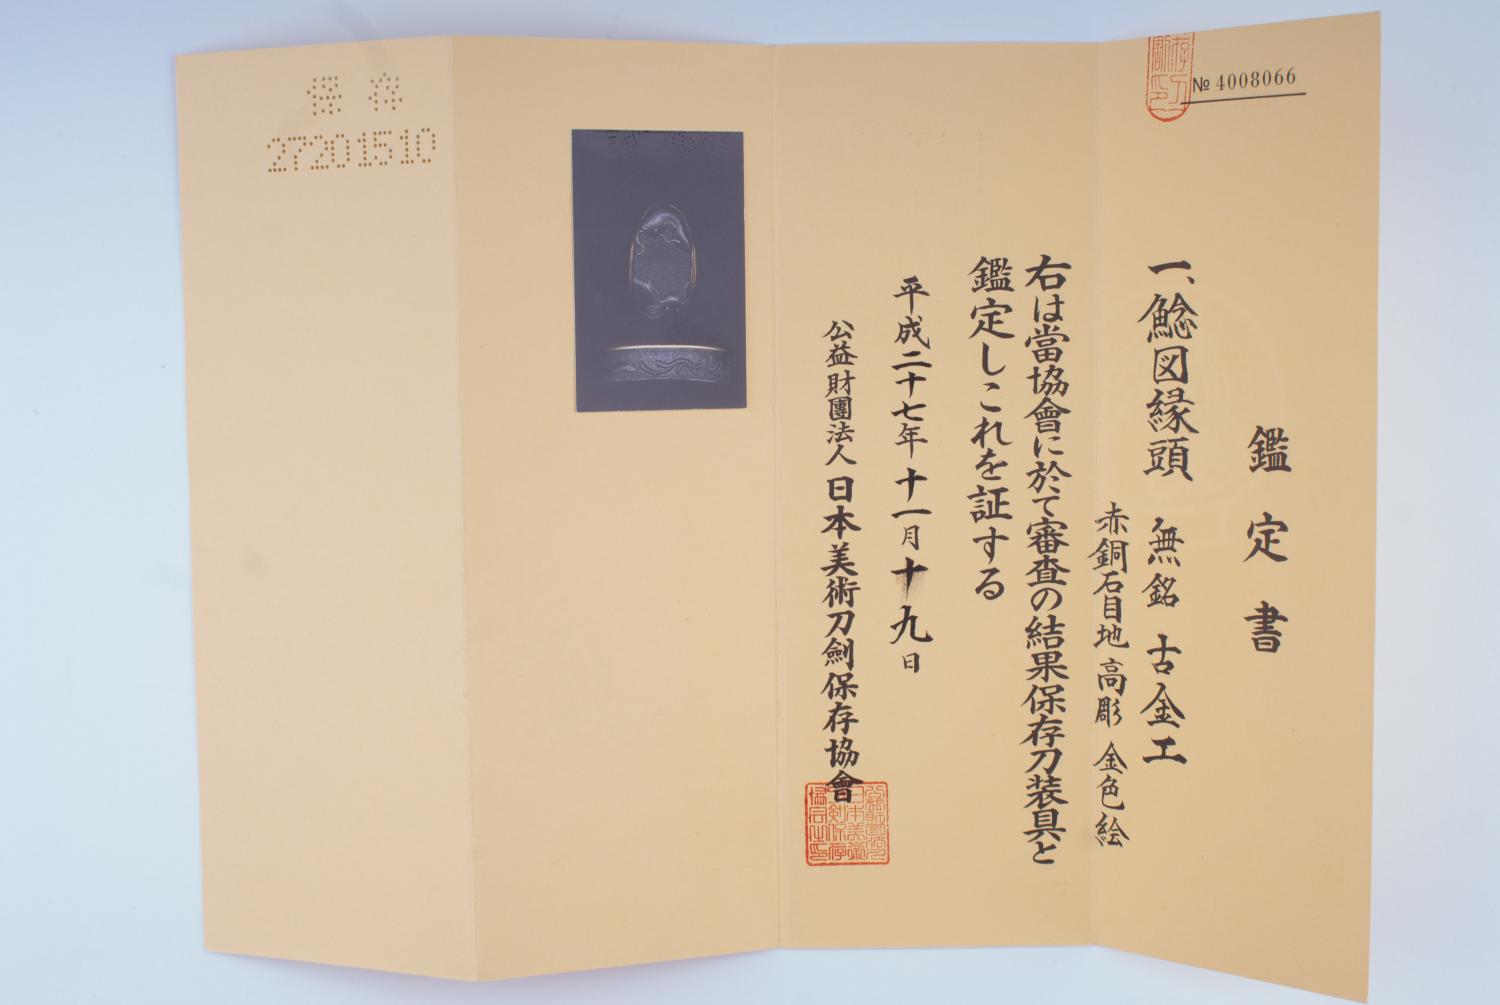 № 4008066
鑑定書
一、鯰図縁頭 無銘 古金工
赤銅石目地 高彫 金色絵
右は當協會に於て審査の結果保存刀装具と
鑑定しこれを証する
平成二十七年十一月十九日
公益財團法人 日本美術刀劍保存協會
保存
27201510